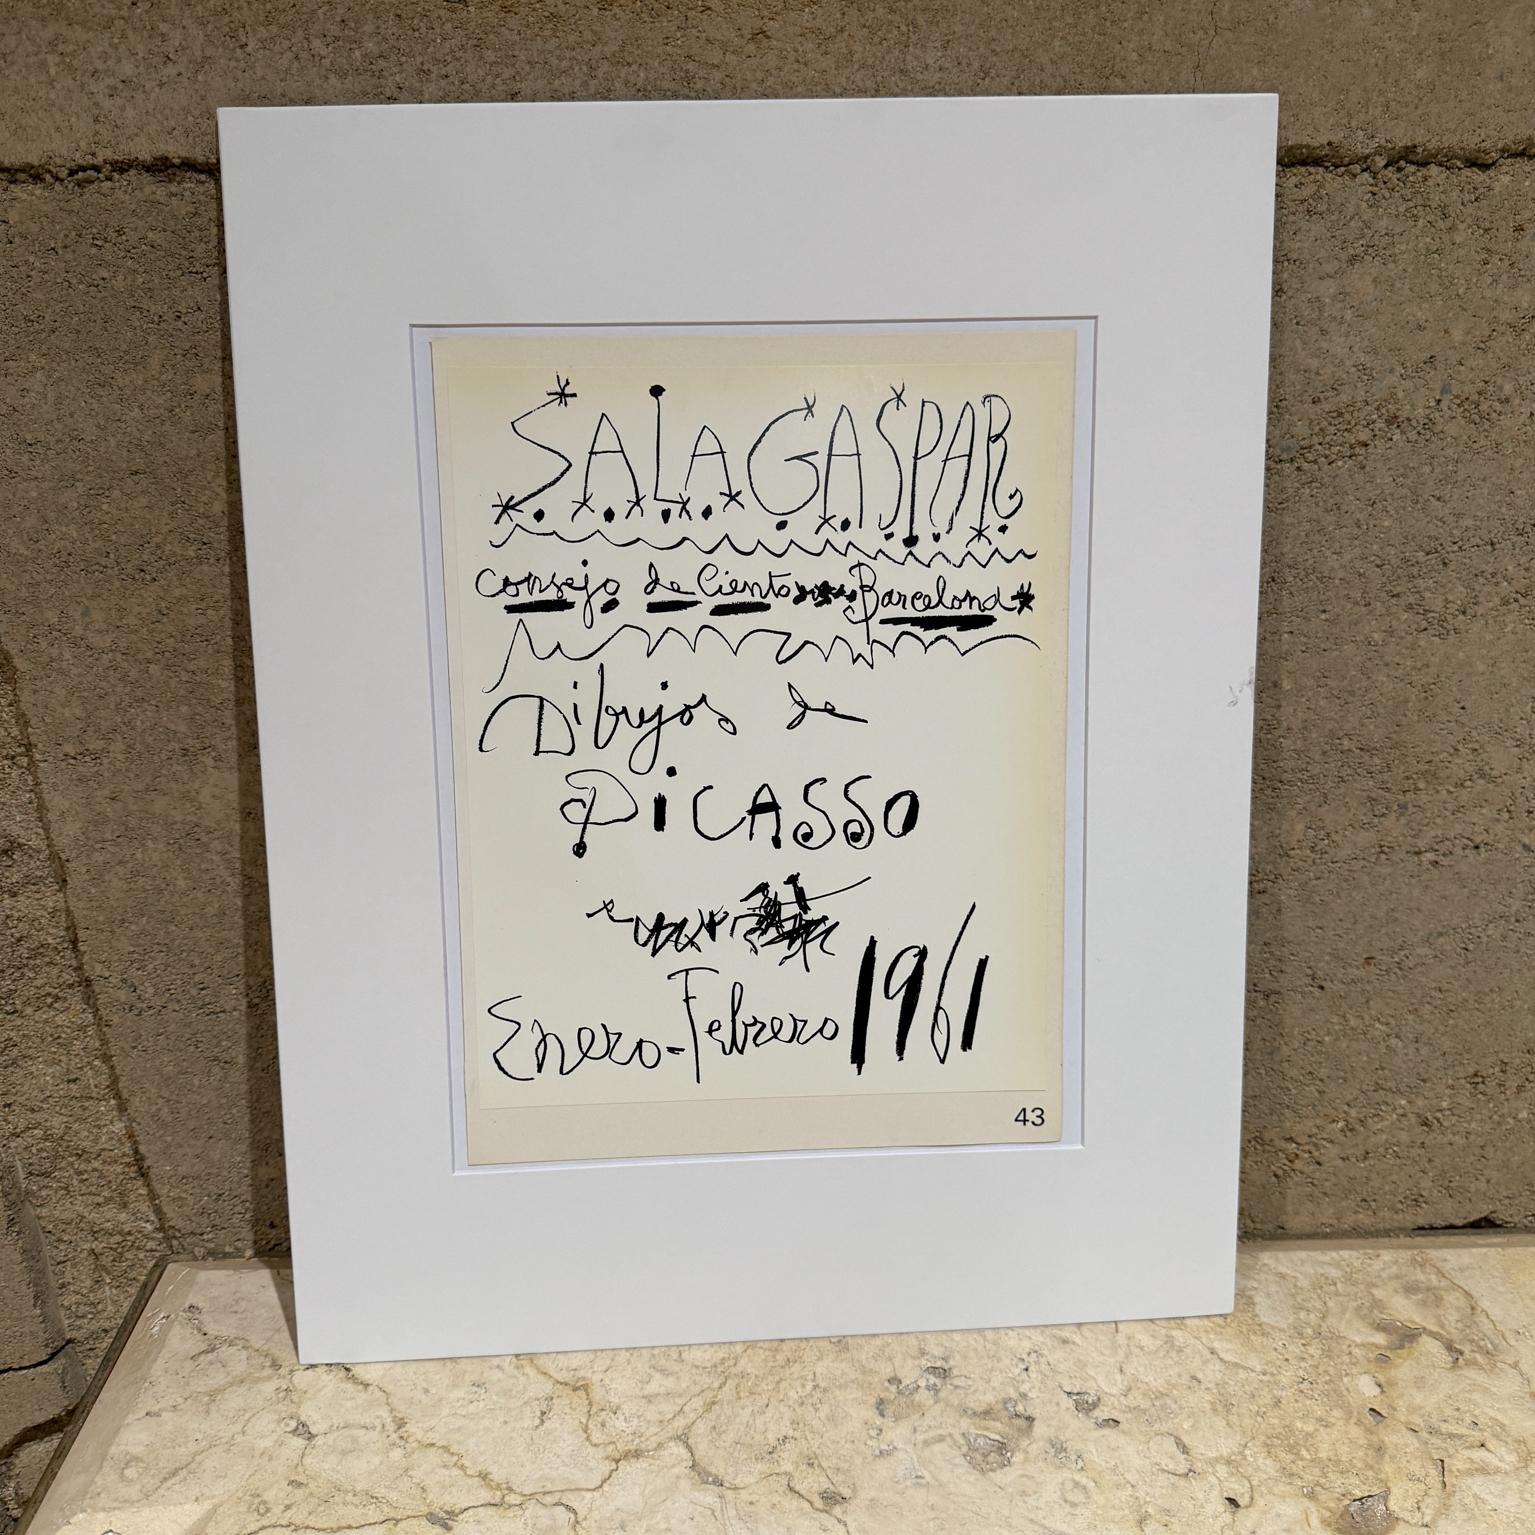 SALA GASPAR
Consejo de Ciento Barcelona
Dibujos de
PiCASSO
Enero-Febrero 1961
43